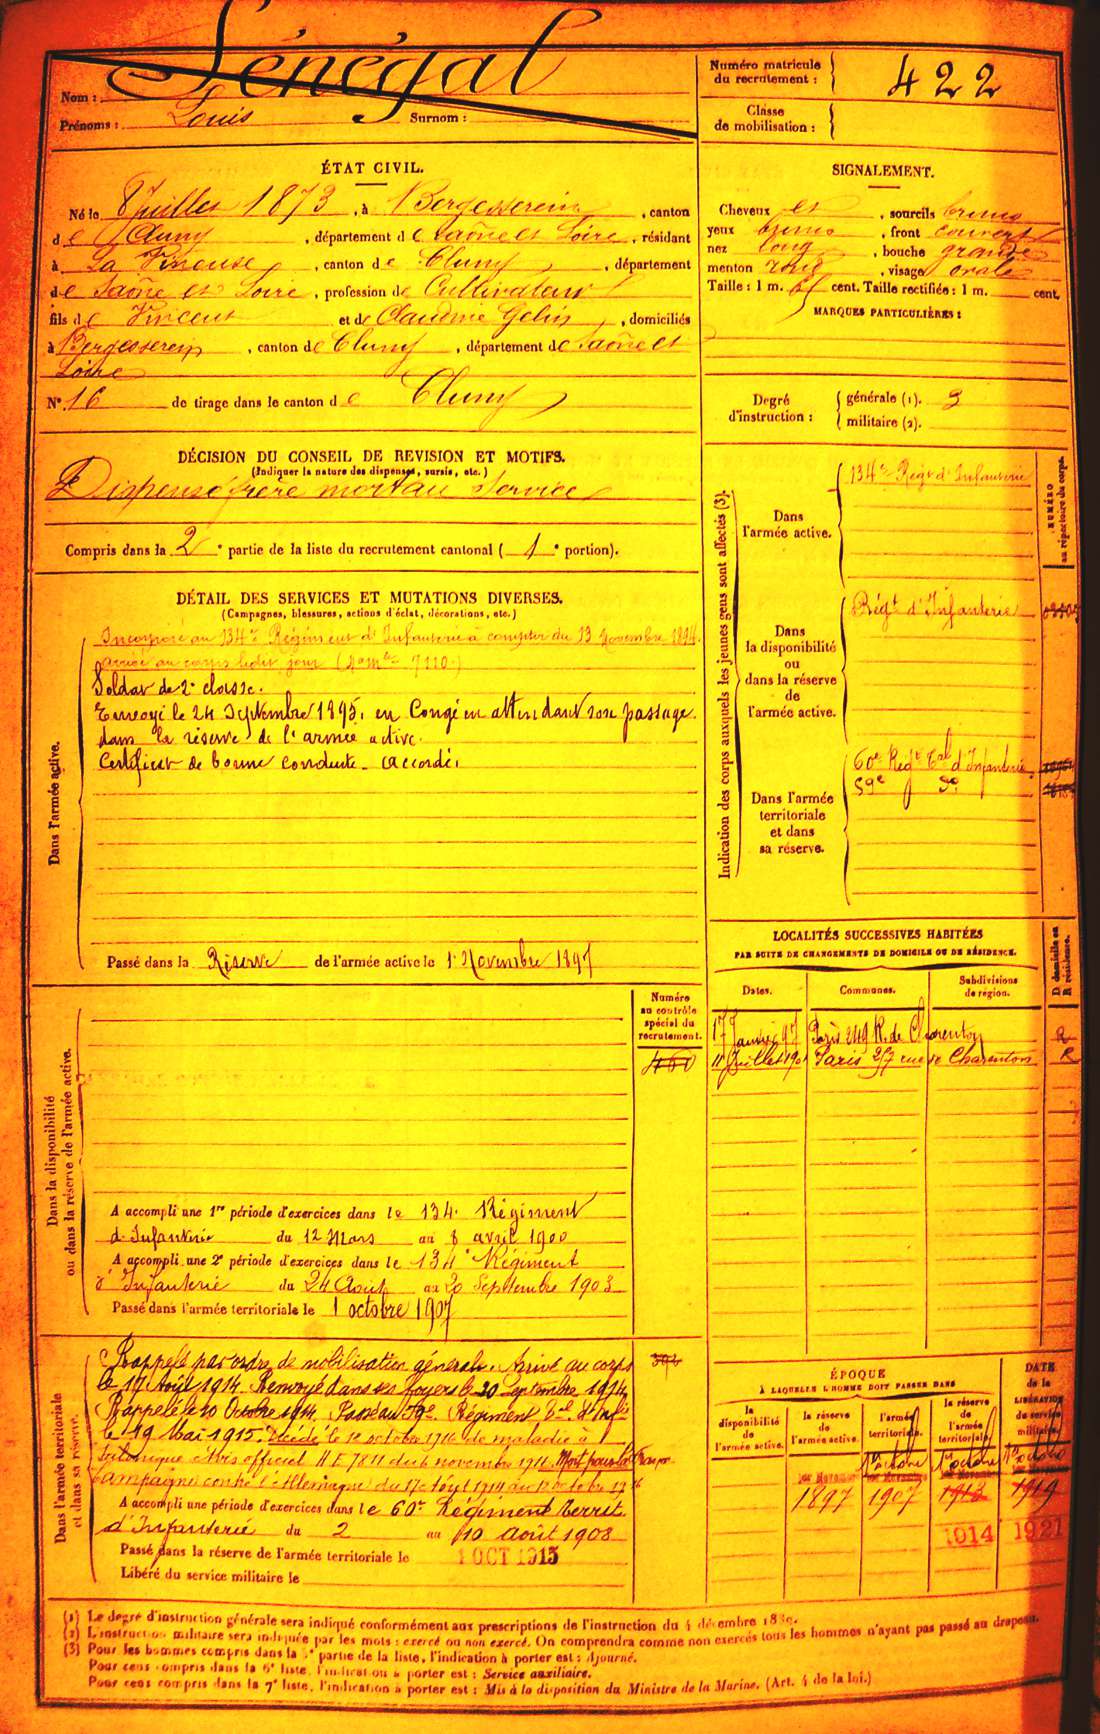 Sénégal
Nom :
Prénoms : Louis Surnom :
Numéro matricule
du recrutement : 422
Classe
de mobilisation :
ÉTAT CIVIL.
Né le 8 Juillet 1873, à Bergesserein, canton
de Cluny, département de Saône et Loire, résidant
à La Vineuse, canton de Cluny, département
de Saône et Loire, profession de Cultivateur
fils de Vincent et de Claudine Gelin, domiciliés
à Bergesserein, canton de Cluny, département de Saône et
Loire
N° 16 de tirage dans le canton de Cluny
SIGNALEMENT.
Cheveux et, sourcils bruns
yeux bruns, front couvert
nez long, bouche grande
menton rond, visage ovale
Taille : 1 m. cent. Taille rectifiée : 1 m. cent.
MARQUES PARTICULIÈRES :
Degré
d'instruction :
générale (1). 3
militaire (2).
DÉCISION DU CONSEIL DE REVISION ET MOTIFS.
(Indiquer la nature des dispenses, sursis, etc.)
Dispensé frère mort au service
Compris dans la 2e partie de la liste du recrutement cantonal (1e portion).
DÉTAIL DES SERVICES ET MUTATIONS DIVERSES.
(Campagnes, blessures, actions d'éclat, décorations, etc.)
Dans l'armée active.
Incorporé au 134e Régiment d'Infanterie à compter du 13 Novembre 1894.
arrivé au corps ledit jour (No mle 7110.)
Soldat de 2e classe.
Envoyé le 24 Septembre 1895, en Congé en attendant son passage
dans la réserve de l'armée active.
Certificat de bonne conduite accordé.
Passé dans la Réserve de l'armée active le 1er Novembre 1897
Indication des corps auxquels les jeunes gens sont affectés (3).
NUMÉRO
au répertoire du corps.
Dans
l'armée active.
134e Régt d'Infanterie
Dans
la disponibilité
ou
dans la réserve
de
l'armée active.
Régt d'Infanterie
Dans l'armée
territoriale
et dans
sa réserve.
60e Régt Tal d'Infanterie
59e do
LOCALITÉS SUCCESSIVES HABITÉES
PAR SUITE DE CHANGEMENTS DE DOMICILE OU DE RÉSIDENCE.
D domicile ou
R résidence.
Dates. Communes. Subdivisions
de région.
17 Janvier 97 Paris 249 R. de Charenton R
11 Juillet 190 Paris 257 rue de Charenton R
Dans la disponibilité
ou dans la réserve de l'armée active.
Numéro
au contrôle
spécial du
recrutement.
460
A accompli une 1re période d'exercices dans le 134e Régiment
d'Infanterie du 12 Mars au 8 avril 1900
A accompli une 2e période d'exercices dans le 134e Régiment
d'Infanterie du 24 Août au 20 Septembre 1903
Passé dans l'armée territoriale le 1 octobre 1907
Dans l'armée territoriale
et dans sa réserve.
Rappelé par ordre de mobilisation générale. Arrivé au corps
le 17 Août 1914. Renvoyé dans ses foyers le 20 Septembre 1914
Rappelé le 10 Octobre 1914. Passé au 59e Régiment Tal d'Inf
le 19 Mai 1915. Décédé le octobre 1916 de maladie à
Salonique Avis officiel du 6 novembre 1916. Mort pour la France.
Campagne contre l'Allemagne du 17 Août 1914 au octobre 1916
A accompli une période d'exercices dans le 60e Régiment Territ.
d'Infanterie du 2 au 10 août 1908
Passé dans la réserve de l'armée territoriale le 1 OCT 1913
Libéré du service militaire le
ÉPOQUE
À LAQUELLE L'HOMME DOIT PASSER DANS
DATE
de la
LIBÉRATION
du service
militaire.
la
disponibilité
de
l'armée active.
la réserve
de
l'armée active.
l'armée
territoriale.
la réserve
de
l'armée
territoriale.
1er octobre 1er octobre 1er octobre
1er Novembre 1er Novembre 1er Novembre
1897 1907 1913 1919
1914 1921
(1) Le degré d'instruction générale sera indiqué conformément aux prescriptions de l'instruction du 4 décembre 1889.
(2) L'instruction militaire sera indiquée par les mots : exercé ou non exercé. On comprendra comme non exercés tous les hommes n'ayant pas passé au drapeau.
(3) Pour les hommes compris dans la partie de la liste, l'indication à porter est : Ajourné.
Pour ceux compris dans la 6e liste, l'indication à porter est : Service auxiliaire.
Pour ceux compris dans la 7e liste, l'indication à porter est : Mis à la disposition du Ministre de la Marine. (Art. 4 de la loi.)